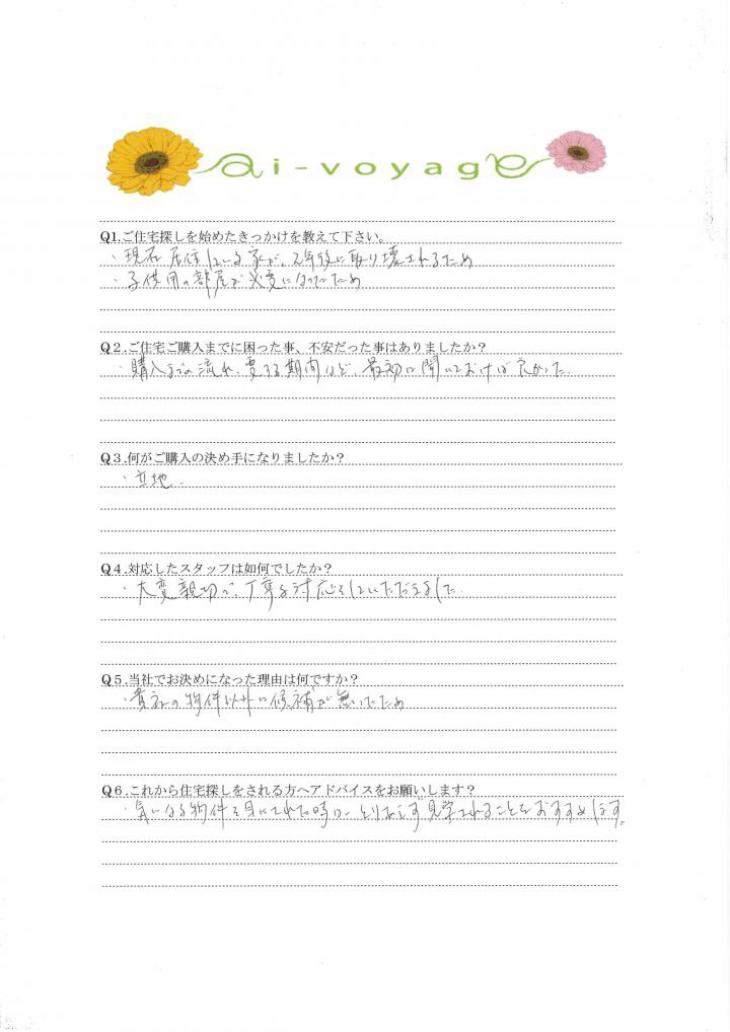 ai-voyage
Q1.ご住宅探しを始めたきっかけを教えて下さい。
・現在居住している家が、2年後に取り壊されるため
・子供用の部屋が必要になったため
Q2.ご住宅ご購入までに困った事、不安だった事はありましたか？
・購入までの流れ、要する期間など、最初に聞いておけば良かった.
Q3.何がご購入の決め手になりましたか？
・立地.
Q4.対応したスタッフは如何でしたか？
・大変親切で、丁寧な対応をしていただきました.
Q5.当社でお決めになった理由は何ですか？
・貴社の物件以外に候補が無いため
Q6.これから住宅探しをされる方へアドバイスをお願いします？
・気になる物件を見つけられた時に、とりあえず見学されることをおすすめします。